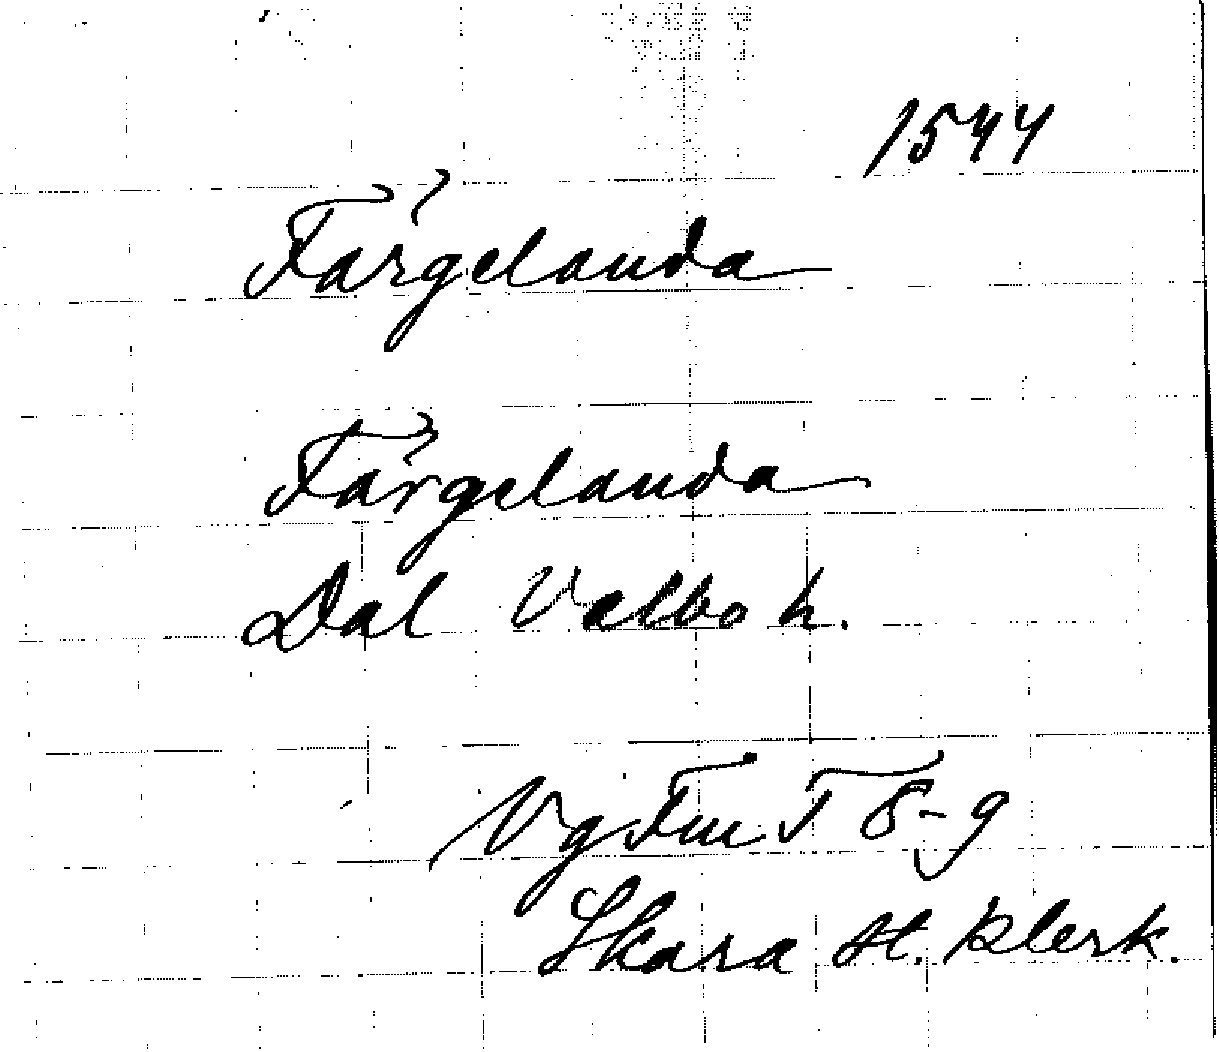 1544
Färgelanda
Färgelanda
Dal Valbo h.
Vg Fm I 8-9
Skara st. klerk.